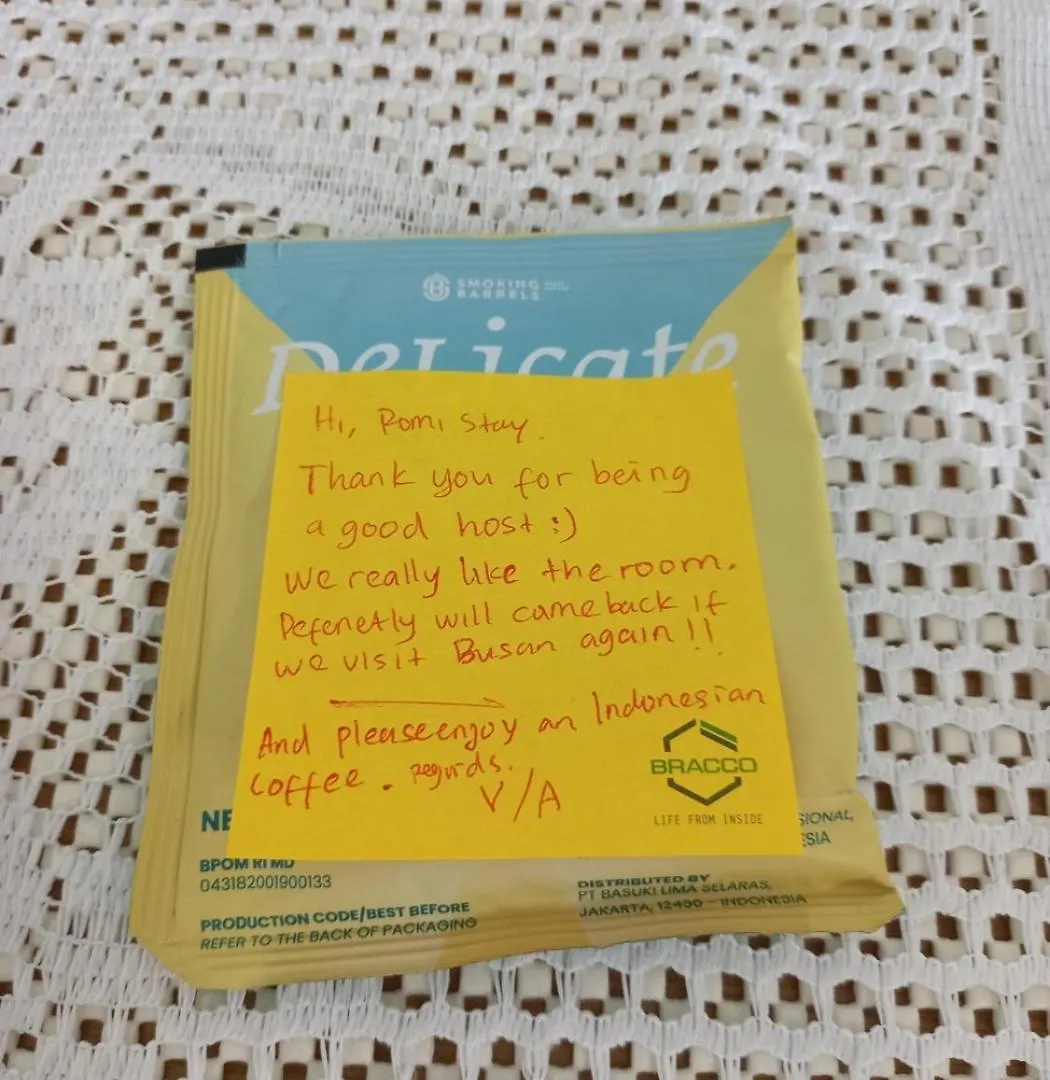 SMOKING
BARRELS
DeLicate
Hi, Romi Stay.
Thank you for being
a good host :)
We really like the room.
Defenetly will came back if
we visit Busan again !!
And please enjoy an Indonesian
Coffee. Regards.
V/A
BRACCO
LIFE FROM INSIDE
NE
SIONAL,
ESIA
BPOM RI MD
043182001900133
DISTRIBUTED BY
PT BASUKI LIMA SELARAS,
JAKARTA, 12450 - INDONESIA
PRODUCTION CODE/BEST BEFORE
REFER TO THE BACK OF PACKAGING